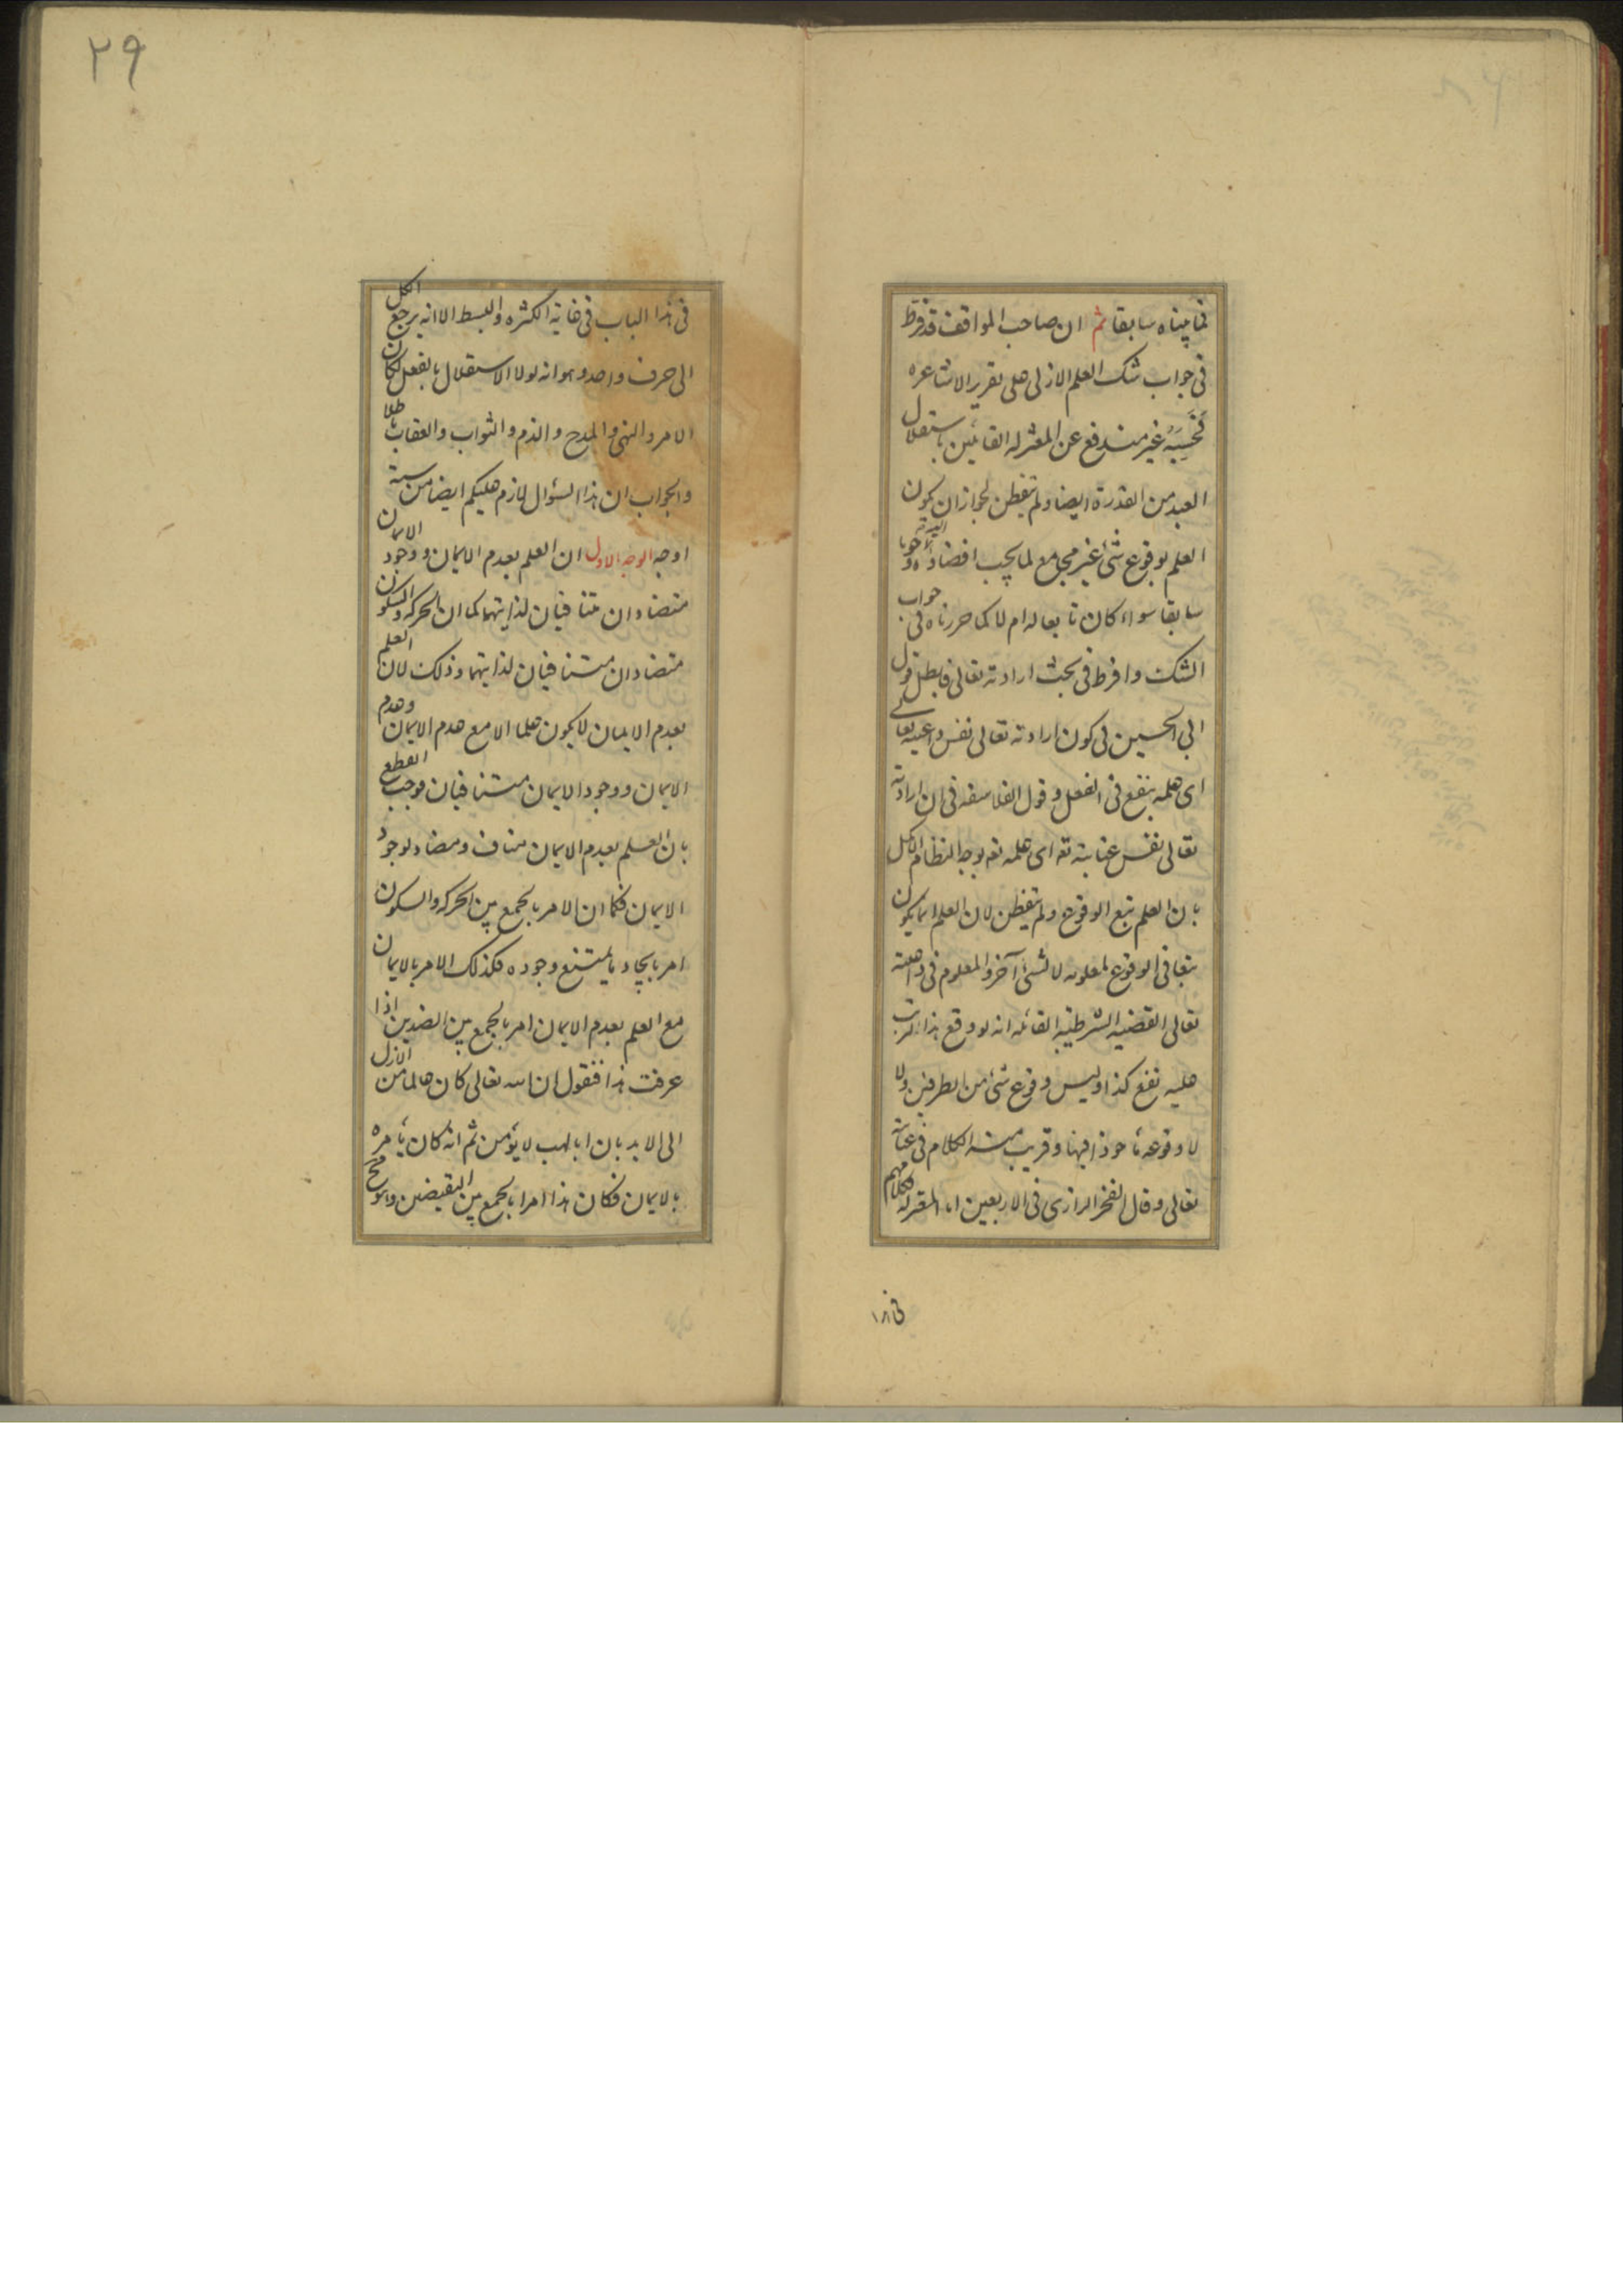 كما بيناه سابقا ثم ان صاحب المواقف قد فرط
فى جواب شك العلم الازلى على تقرير الاشاعره
فحسبه غير مندفع عن المعتزله القائلين باستقلال
العبد من القدرة ايضا ولم يتفطن لجواز ان يكون
العلم بوقوع شئ غير مجامع لما يجب اقتضاؤه وجوبا
سابقا سواء كان تابعا له ام لا كما حررناه فى جواب
الشك وافرط فى بحث ارادته تعالى فابطل قول
ابى الحسين فى كون ارادته تعالى نفس داعيته تعالى
اى علمه بنفع فى الفعل وقول الفلاسفه فى ان ارادته
تعالى نفس عنايته تع اى علمه تع بوجه النظام الاكمل
بان العلم تبع الوقوع ولم يتفطن لان العلم انما يكون
تبعا فى الوقوع لمعلومه لا لشئ آخر والمعلوم فى داعيته
تعالى القضيه الشرطيه القائله انه لو وقع هذا لترتب
عليه نفع كذا وليس وقوع شئ من الطرفين ولا
لا وقوعه ماخوذا فيها وقريب منه الكلام فى عنايته
تعالى وقال الفخر الرازى فى الاربعين اما المعتزله فكلامهم
فى هذا
٢٩
فى هذا الباب فى غاية الكثره والبسط الا انه يرجع الكل
الى حرف واحد وهو انه لولا الاستقلال بالفعل لكان
الامر والنهى والمدح والذم والثواب والعقاب باطلا
والجواب ان هذا السؤال لازم عليكم ايضا من ستة
اوجه الوجه الاول ان العلم بعدم الايمان ووجود الايمان
متضادان متنافيان لذاتيهما كما ان الحركه والسكون
متضادان متنافيان لذاتيهما وذلك لان العلم
بعدم الايمان لا يكون علما الا مع عدم الايمان وعدم
الايمان ووجود الايمان متنافيان فوجب القطع
بان العلم بعدم الايمان مناف ومضاد لوجود
الايمان فكما ان الامر بالجمع بين الحركه والسكون
امر بايجاد ما يمتنع وجوده فكذلك الامر بالايمان
مع العلم بعدم الايمان امر بالجمع بين الضدين اذا
عرفت هذا فنقول ان الله تعالى كان عالما من الازل
الى الابد بان ابا لهب لا يؤمن ثم انه كان يأمره
بالايمان فكان هذا امرا بالجمع بين النقيضين